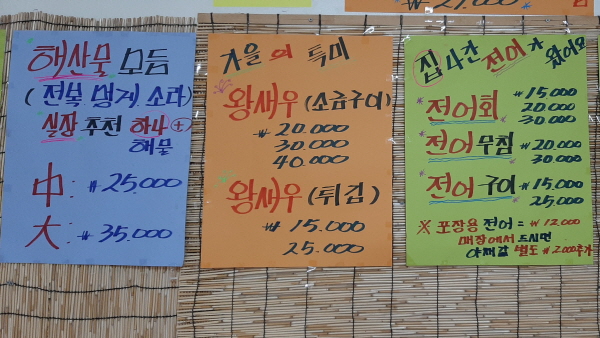 27.000
해산물 모듬
(전복 멍게 소라)
실장 추천 하나 +
해물
中: ₩ 25.000
大: ₩ 35.000
가을의 특미
왕새우 (소금구이)
₩ 20.000
30.000
40.000
왕새우 (튀김)
₩ 15.000
25.000
집 나간 전어가 왔어요
전어회 ₩ 15.000
20.000
30.000
전어무침 ₩ 20.000
30.000
전어구이 ₩ 15.000
25.000
※ 포장용 전어 = ₩ 12.000
매장에서 드시면
야채값 별도 ₩ 2.000추가